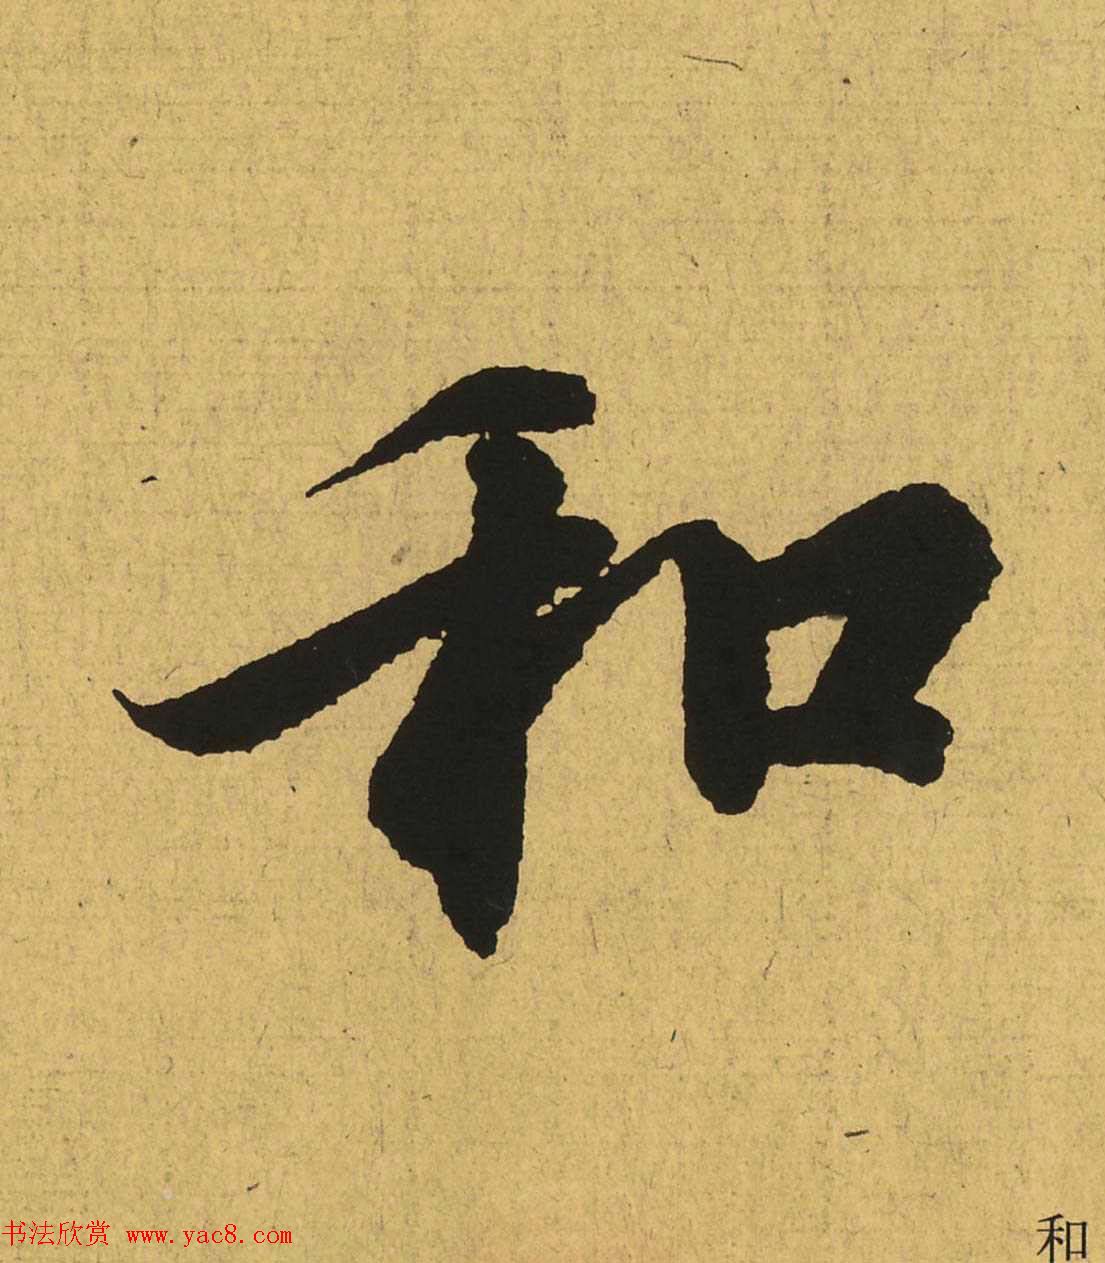 和
书法欣赏 www.yac8.com
和